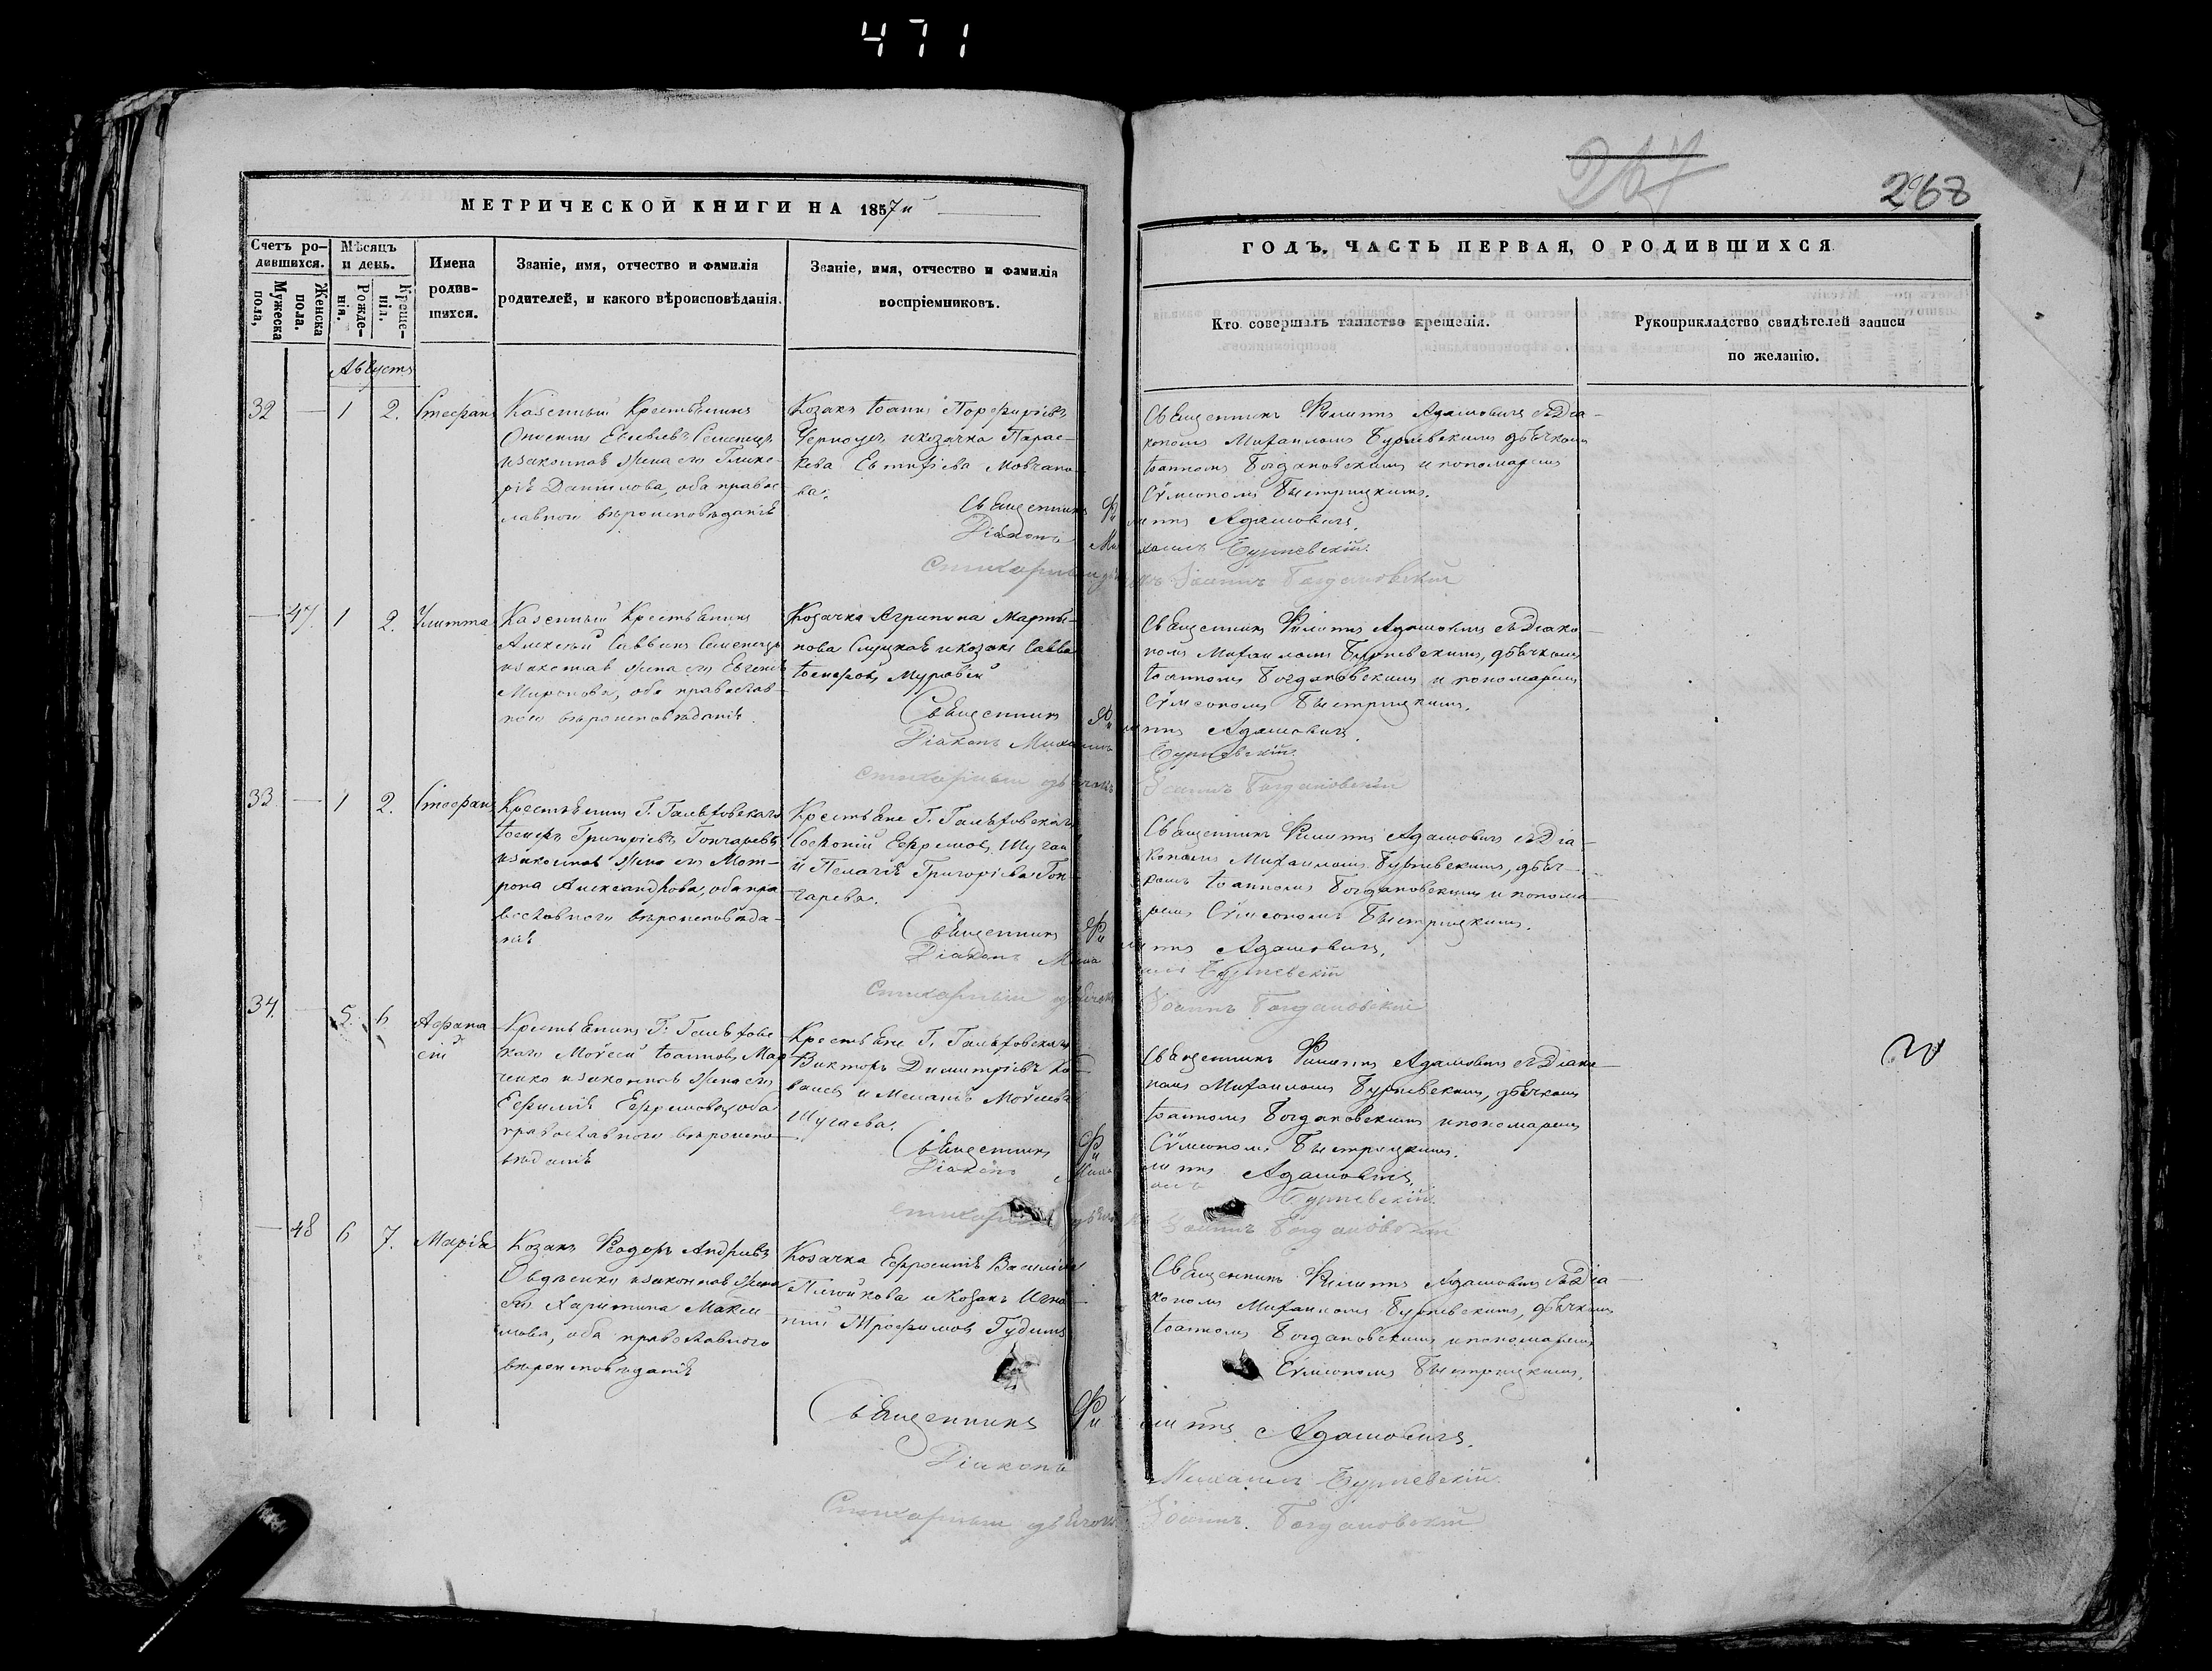 471
267
268
МЕТРИЧЕСКОЙ КНИГИ НА 1857й
ГОДЪ, ЧАСТЬ ПЕРВАЯ, О РОДИВШИХСЯ
Счетъ ро-
дившихся.
Мужеска
пола,
Женска
пола.
Мѣсяцъ
и день.
Рожде-
нія.
Креще-
нія.
Имена
родив-
шихся.
Званіе, имя, отчество и фамилія
родителей, и какого вѣроисповѣданія.
Званіе, имя, отчество и фамилія
воспріемниковъ.
Кто совершалъ таинство крещенія.
Рукоприкладство свидѣтелей записи
по желанію.
Августъ
32 — 1 2. Стефанъ
Казенный Крестьянинъ
Семенецъ
и законная жена его Глике-
рія Данилова, оба правос
лавнои вѣроисповѣданія
Козакъ Іоаннъ Порфиріевъ
Черноусъ и козачка Парас-
кева Евтихіева Мовчано-
ва.
Священникъ Филиппъ Адамовичъ съ Діа-
кономъ Михаиломъ Бурневскимъ, дьячкомъ
Іоанномъ Богдановскимъ и пономаремъ
Сѵмеономъ Быстрицкимъ.
Священникъ Филиппъ Адамовичъ.
Діаконъ Михаилъ Бурневскій.
Стихарный дьячокъ Іоаннъ Богдановскій
— 47. 1 2. Улитта
Казенный Крестьянинъ
Алексѣй Саввинъ Семенецъ
и законная жена его Евгенія
Миронова, оба православ-
ного вѣроисповѣданія.
Козачка Агрипина Марты-
нова и козакъ Савва
Іосифовъ Муравей
Священникъ Филиппъ Адамовичъ съ Діако-
номъ Михаиломъ Бурневскимъ, дьячкомъ
Іоанномъ Богдановскимъ и пономаремъ
Сѵмеономъ Быстрицкимъ.
Священникъ Филиппъ Адамовичъ.
Діаконъ Михаилъ Бурневскій.
Стихарный дьячокъ Іоаннъ Богдановскій
33 — 1 2. Стефанъ
Крестьянинъ Г. Гальховскаго
Іосифъ Григоріевъ Гончаревъ
и законная жена его Мот-
рона Александрова, оба пра-
вославного вѣроисповѣда-
нія
Крестьяне Г. Гальховскаго
Софроній Ефремовъ Шугаи
и Пелагія Григоріева Гон-
чарева.
Священникъ Филиппъ Адамовичъ съ Діа-
кономъ Михаиломъ Бурневскимъ, дьяч-
комъ Іоанномъ Богдановскимъ и понома-
ремъ Сѵмеономъ Быстрицкимъ.
Священникъ Филиппъ Адамовичъ.
Діаконъ Михаилъ Бурневскій
Стихарный дьячокъ Іоаннъ Богдановскій
34. — 5. 6 Афана
сій
Крестьянинъ Г. Гальховс
каго Моѵсей Іоанновъ Мар
ченко и законная жена его
Ефимія Ефремова, оба
православного вѣроиспо-
вѣданія
Крестьяне Г. Гальховскаго
Викторъ Димитріевъ Ко-
валевъ и Меланія Моѵсіева
Шугаева.
Священникъ Филиппъ Адамовичъ съ Діако-
номъ Михаиломъ Бурневскимъ, дьячкомъ
Іоанномъ Богдановскимъ и пономаремъ
Сѵмеономъ Быстрицкимъ.
Священникъ Филиппъ Адамовичъ.
Діаконъ Михаилъ Бурневскій.
Стихарный дьячокъ Іоаннъ Богдановскій
— 48 6 7. Марія
Козакъ Ѳеодоръ Андріевъ
Овдѣенко и законная жена
его Харитина Макси-
мова, оба православного
вѣроисповѣданія
Козачка Ефросинія Василіева
и козакъ Игна-
тій Трофимовъ Гудимъ
Священникъ Филиппъ Адамовичъ съ Діа-
кономъ Михаиломъ Бурневскимъ, дьячкомъ
Іоанномъ Богдановскимъ и пономаремъ
Сѵмеономъ Быстрицкимъ.
Священникъ Филиппъ Адамовичъ.
Діаконъ Михаилъ Бурневскій.
Стихарный дьячокъ Іоаннъ Богдановскій